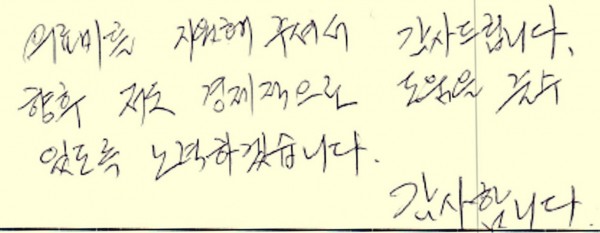 의료비를 지원해 주셔서 감사드립니다.
향후 저도 경제적으로 도움을 줄수
있도록 노력하겠습니다.
감사합니다.